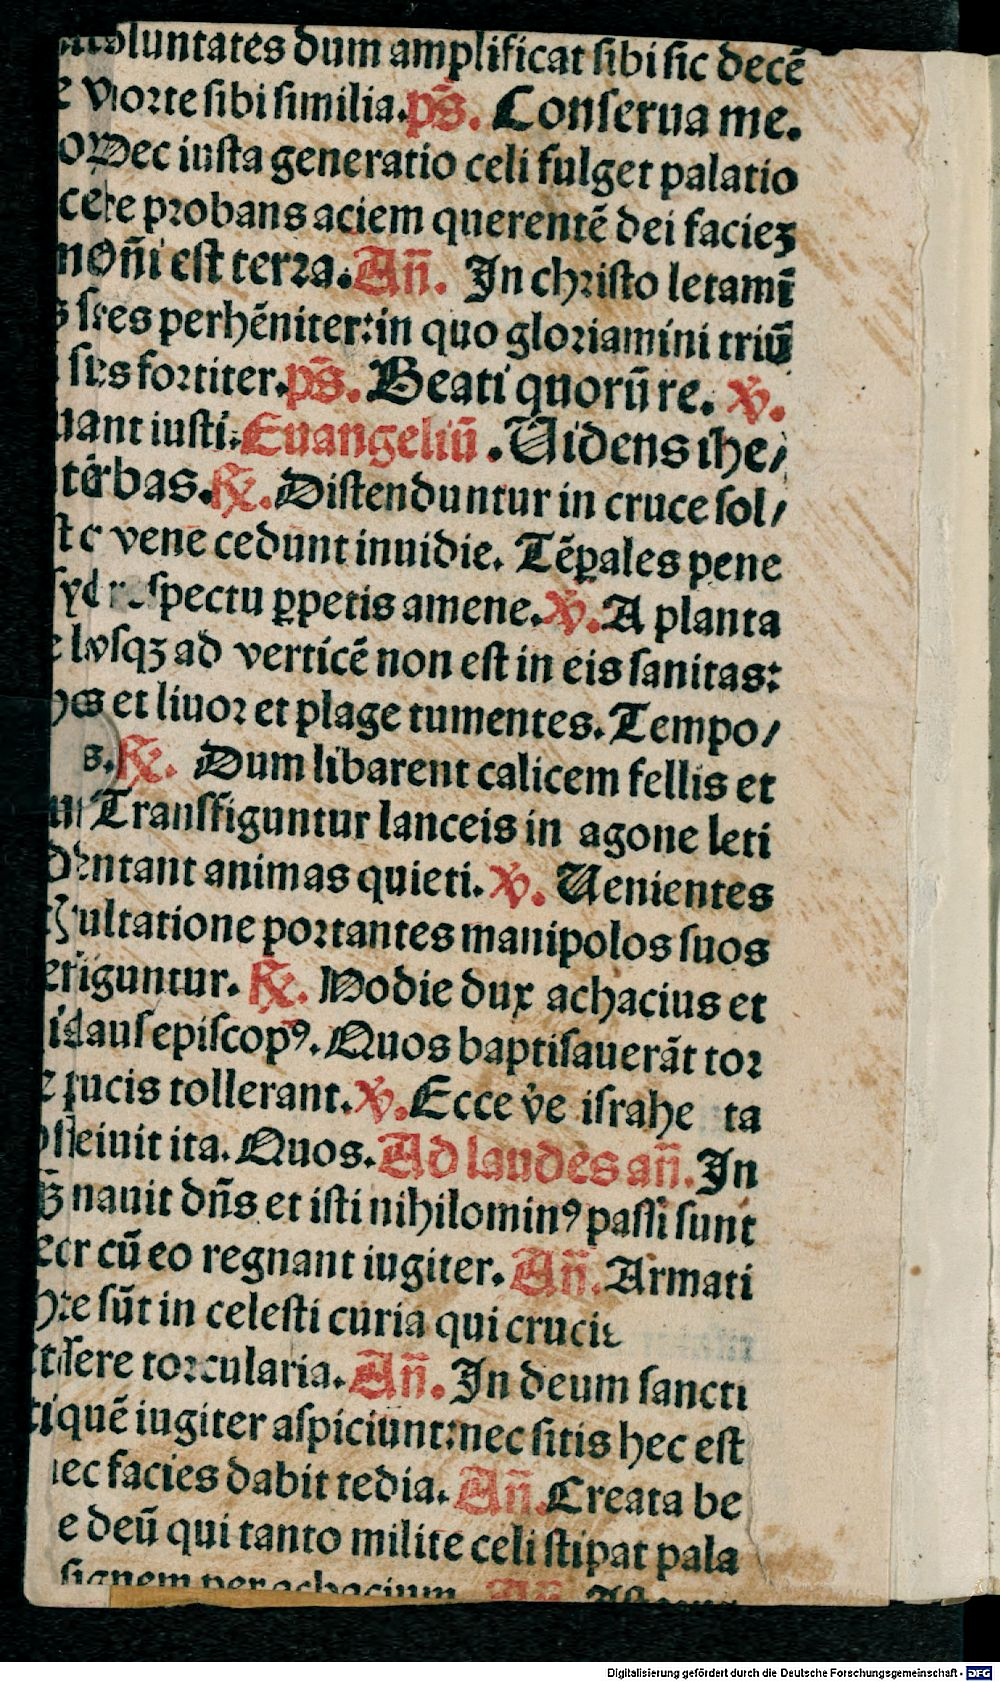 voluntates dum amplificat sibi sic decē
morte sibi similia. ps̄. Conserua me.
Hec iusta generatio celi fulget palatio
probans aciem querentē dei facieꝫ
dn̄i est terra. An̄. In christo letamī
perhēniter: in quo gloriamini triū
fortiter. ps̄. Beati quorū re. ℣.
iusti. Euangeliū. Uidens ihe/
turbas. ℟. Distenduntur in cruce sol/
vene cedunt inuidie. Tēꝑales pene
respectu ꝑpetis amene. ℣. A planta
vsqꝫ ad verticē non est in eis sanitas:
et liuor et plage tumentes. Tempo/
s. ℟. Dum libarent calicem fellis et
Transfiguntur lanceis in agone leti
animas quieti. ℣. Uenientes
portantes manipolos suos
℟. Hodie dux achacius et
episcopꝰ. Quos baptisauerāt tor
crucis tollerant. ℣. Ecce ve israhe ta
ita. Quos. Ad laudes an̄. In
dn̄s et isti nihilominꝰ passi sunt
cū eo regnant iugiter. An̄. Armati
sūt in celesti curia qui cruci
torcularia. An̄. In deum sancti
quē iugiter aspiciunt: nec sitis hec est
nec facies dabit tedia. An̄. Creata be
e deū qui tanto milite celi stipat pala
signem per achacium. An̄.
Digitalisierung gefördert durch die Deutsche Forschungsgemeinschaft - DFG